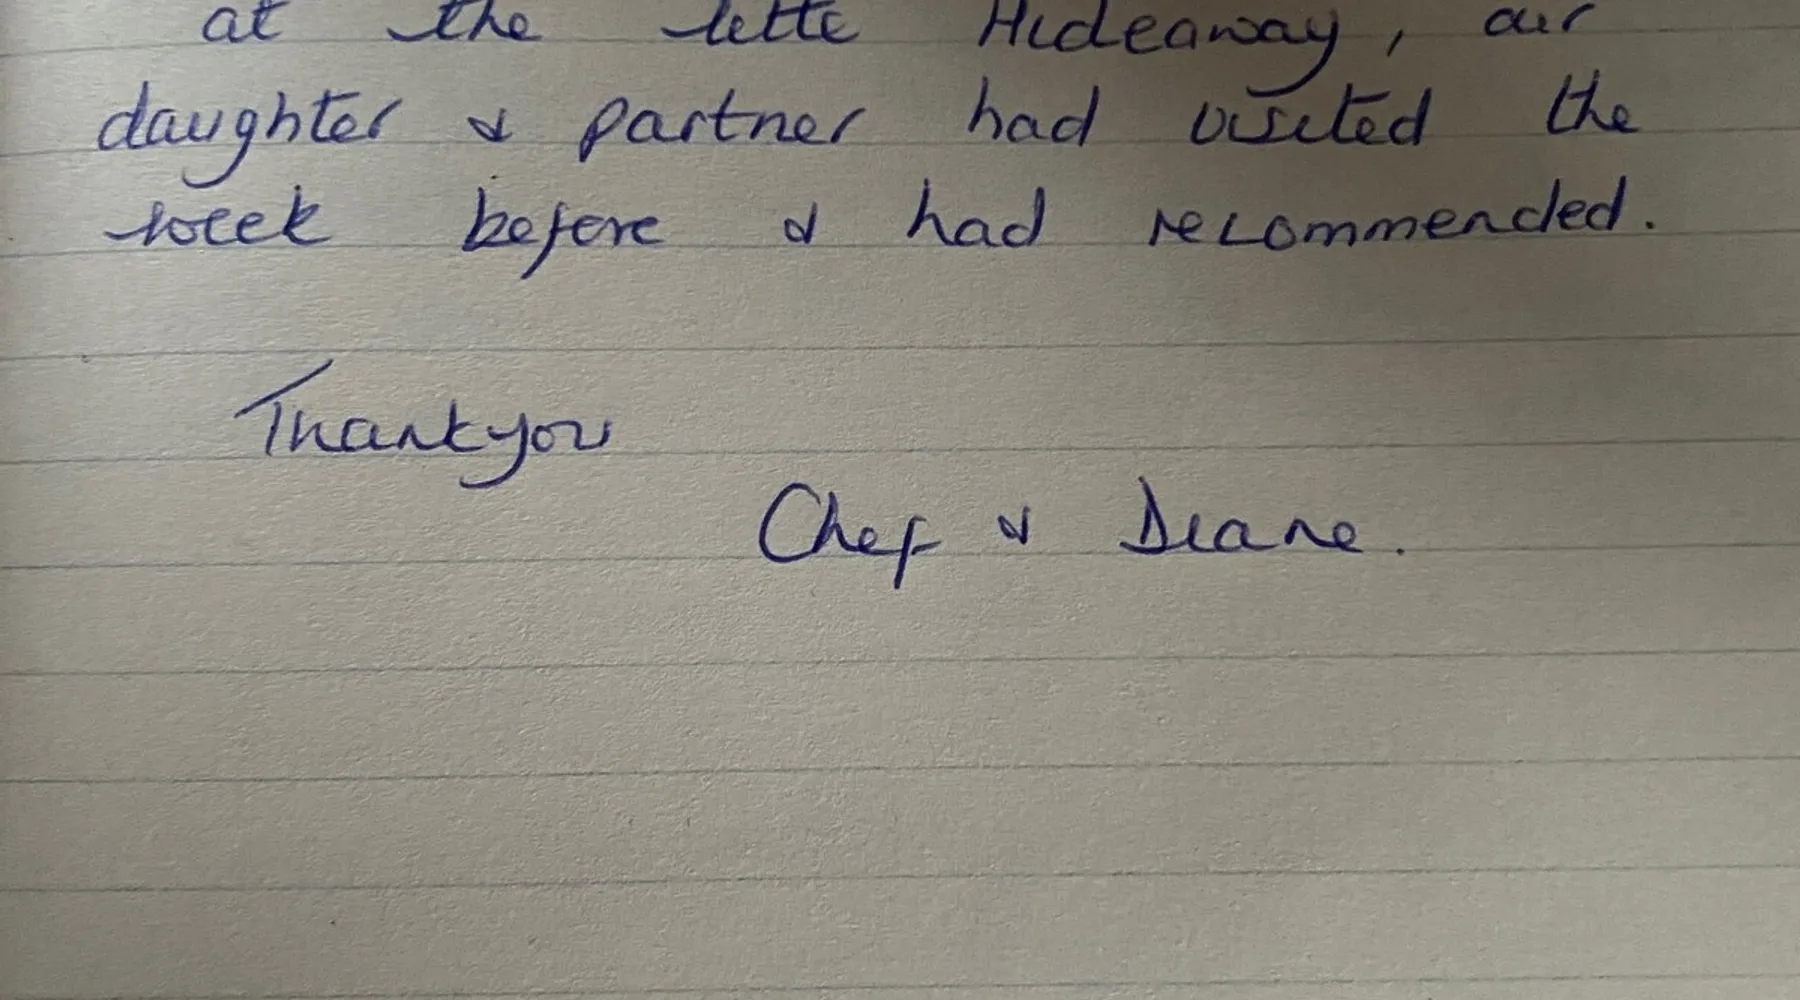 at the little Hideaway, our
daughter & partner had visited the
week before & had recommended.
Thankyou
Chef & Diane.